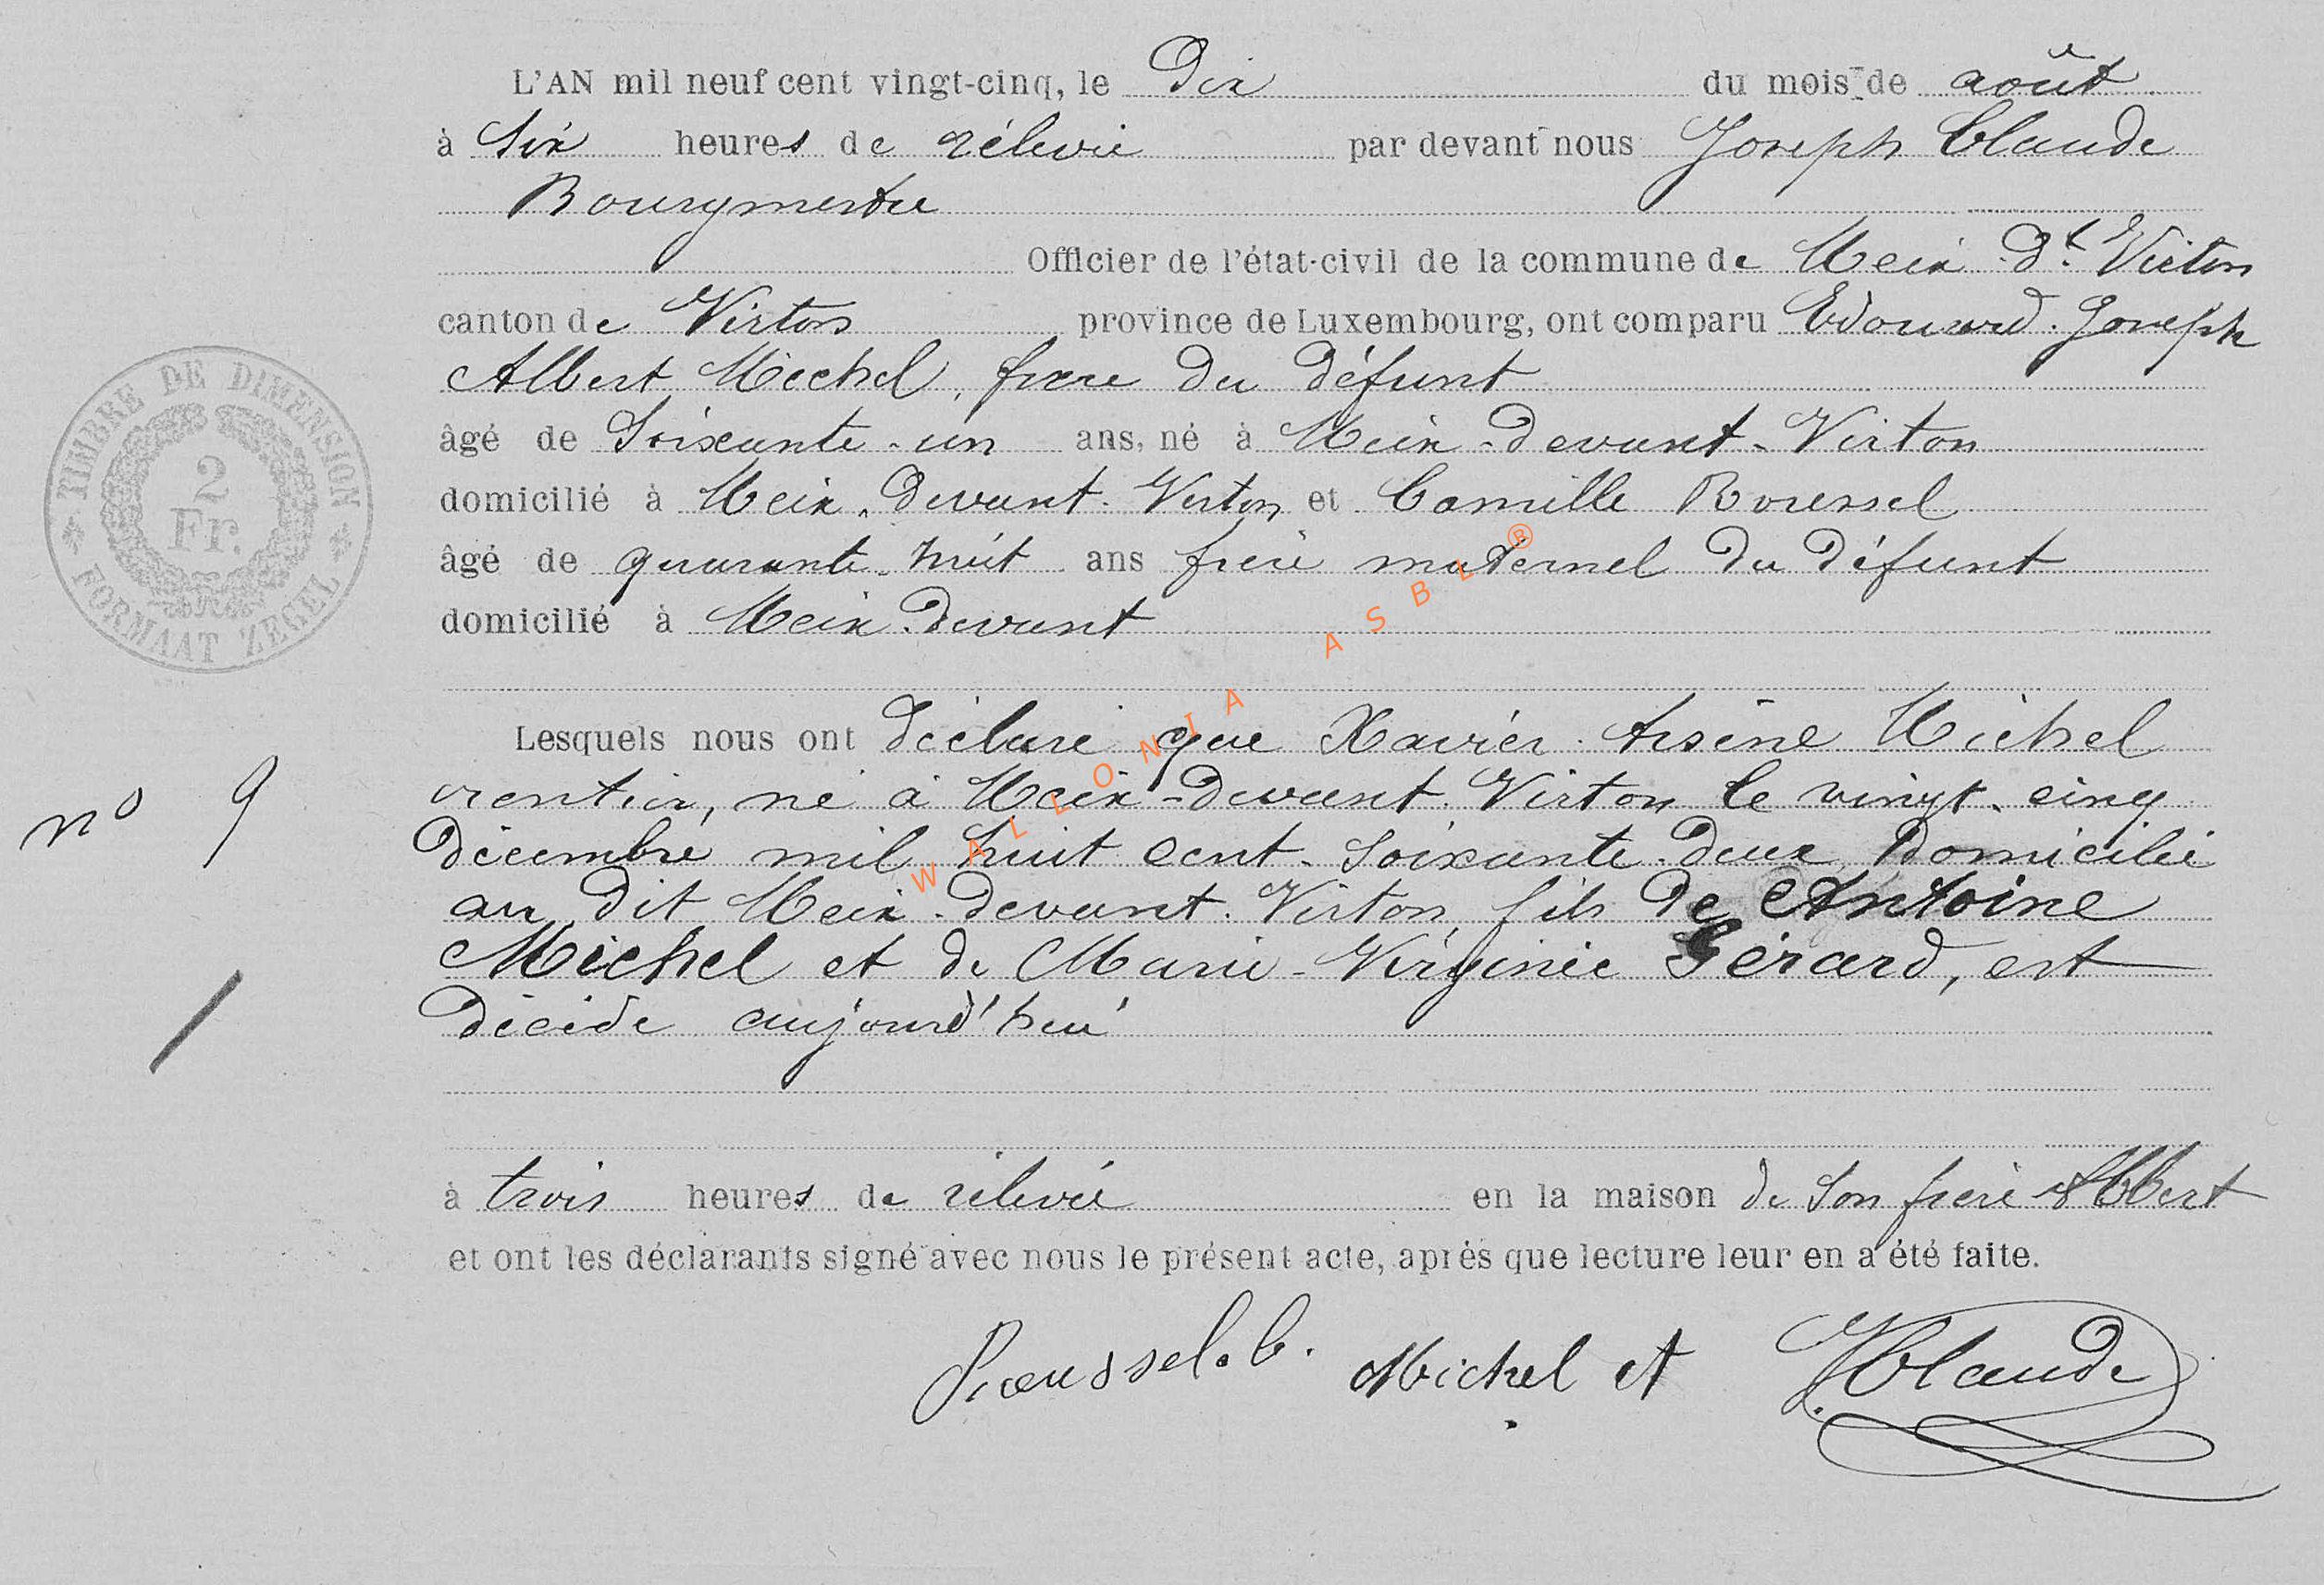 L'AN mil neuf cent vingt-cinq, le Dix du mois de août
à Six heures de rélevée par devant nous Joseph Claude
Bourgmestre
Officier de l'état-civil de la commune de Meix-dt Virton
canton de Virton province de Luxembourg, ont comparu Edouard-Joseph
Albert Michel, frère du défunt
âgé de Soixante-un ans, né à Meix-devant-Virton
domicilié à Meix-devant-Virton et Camille Roussel
âgé de quarante-huit ans frère maternel du défunt
domicilié à Meix-devant
Lesquels nous ont déclaré que Xavier-Arsène Michel
rentier, né à Meix-devant-Virton le vingt-cinq
décembre mil huit cent-soixante-deux domicilié
au dit Meix-devant-Virton, fils de Antoine
Michel et de Marie-Virginie Gérard, est
décédé aujourd'hui
à trois heures de rélevée en la maison de son frère Albert
et ont les déclarants signé avec nous le présent acte, après que lecture leur en a été faite.
Roussel.C. Michel et JClaude
no 9
TIMBRE DE DIMENSION
2
Fr.
FORMAAT ZEGEL
WALLONIA ASBL ®